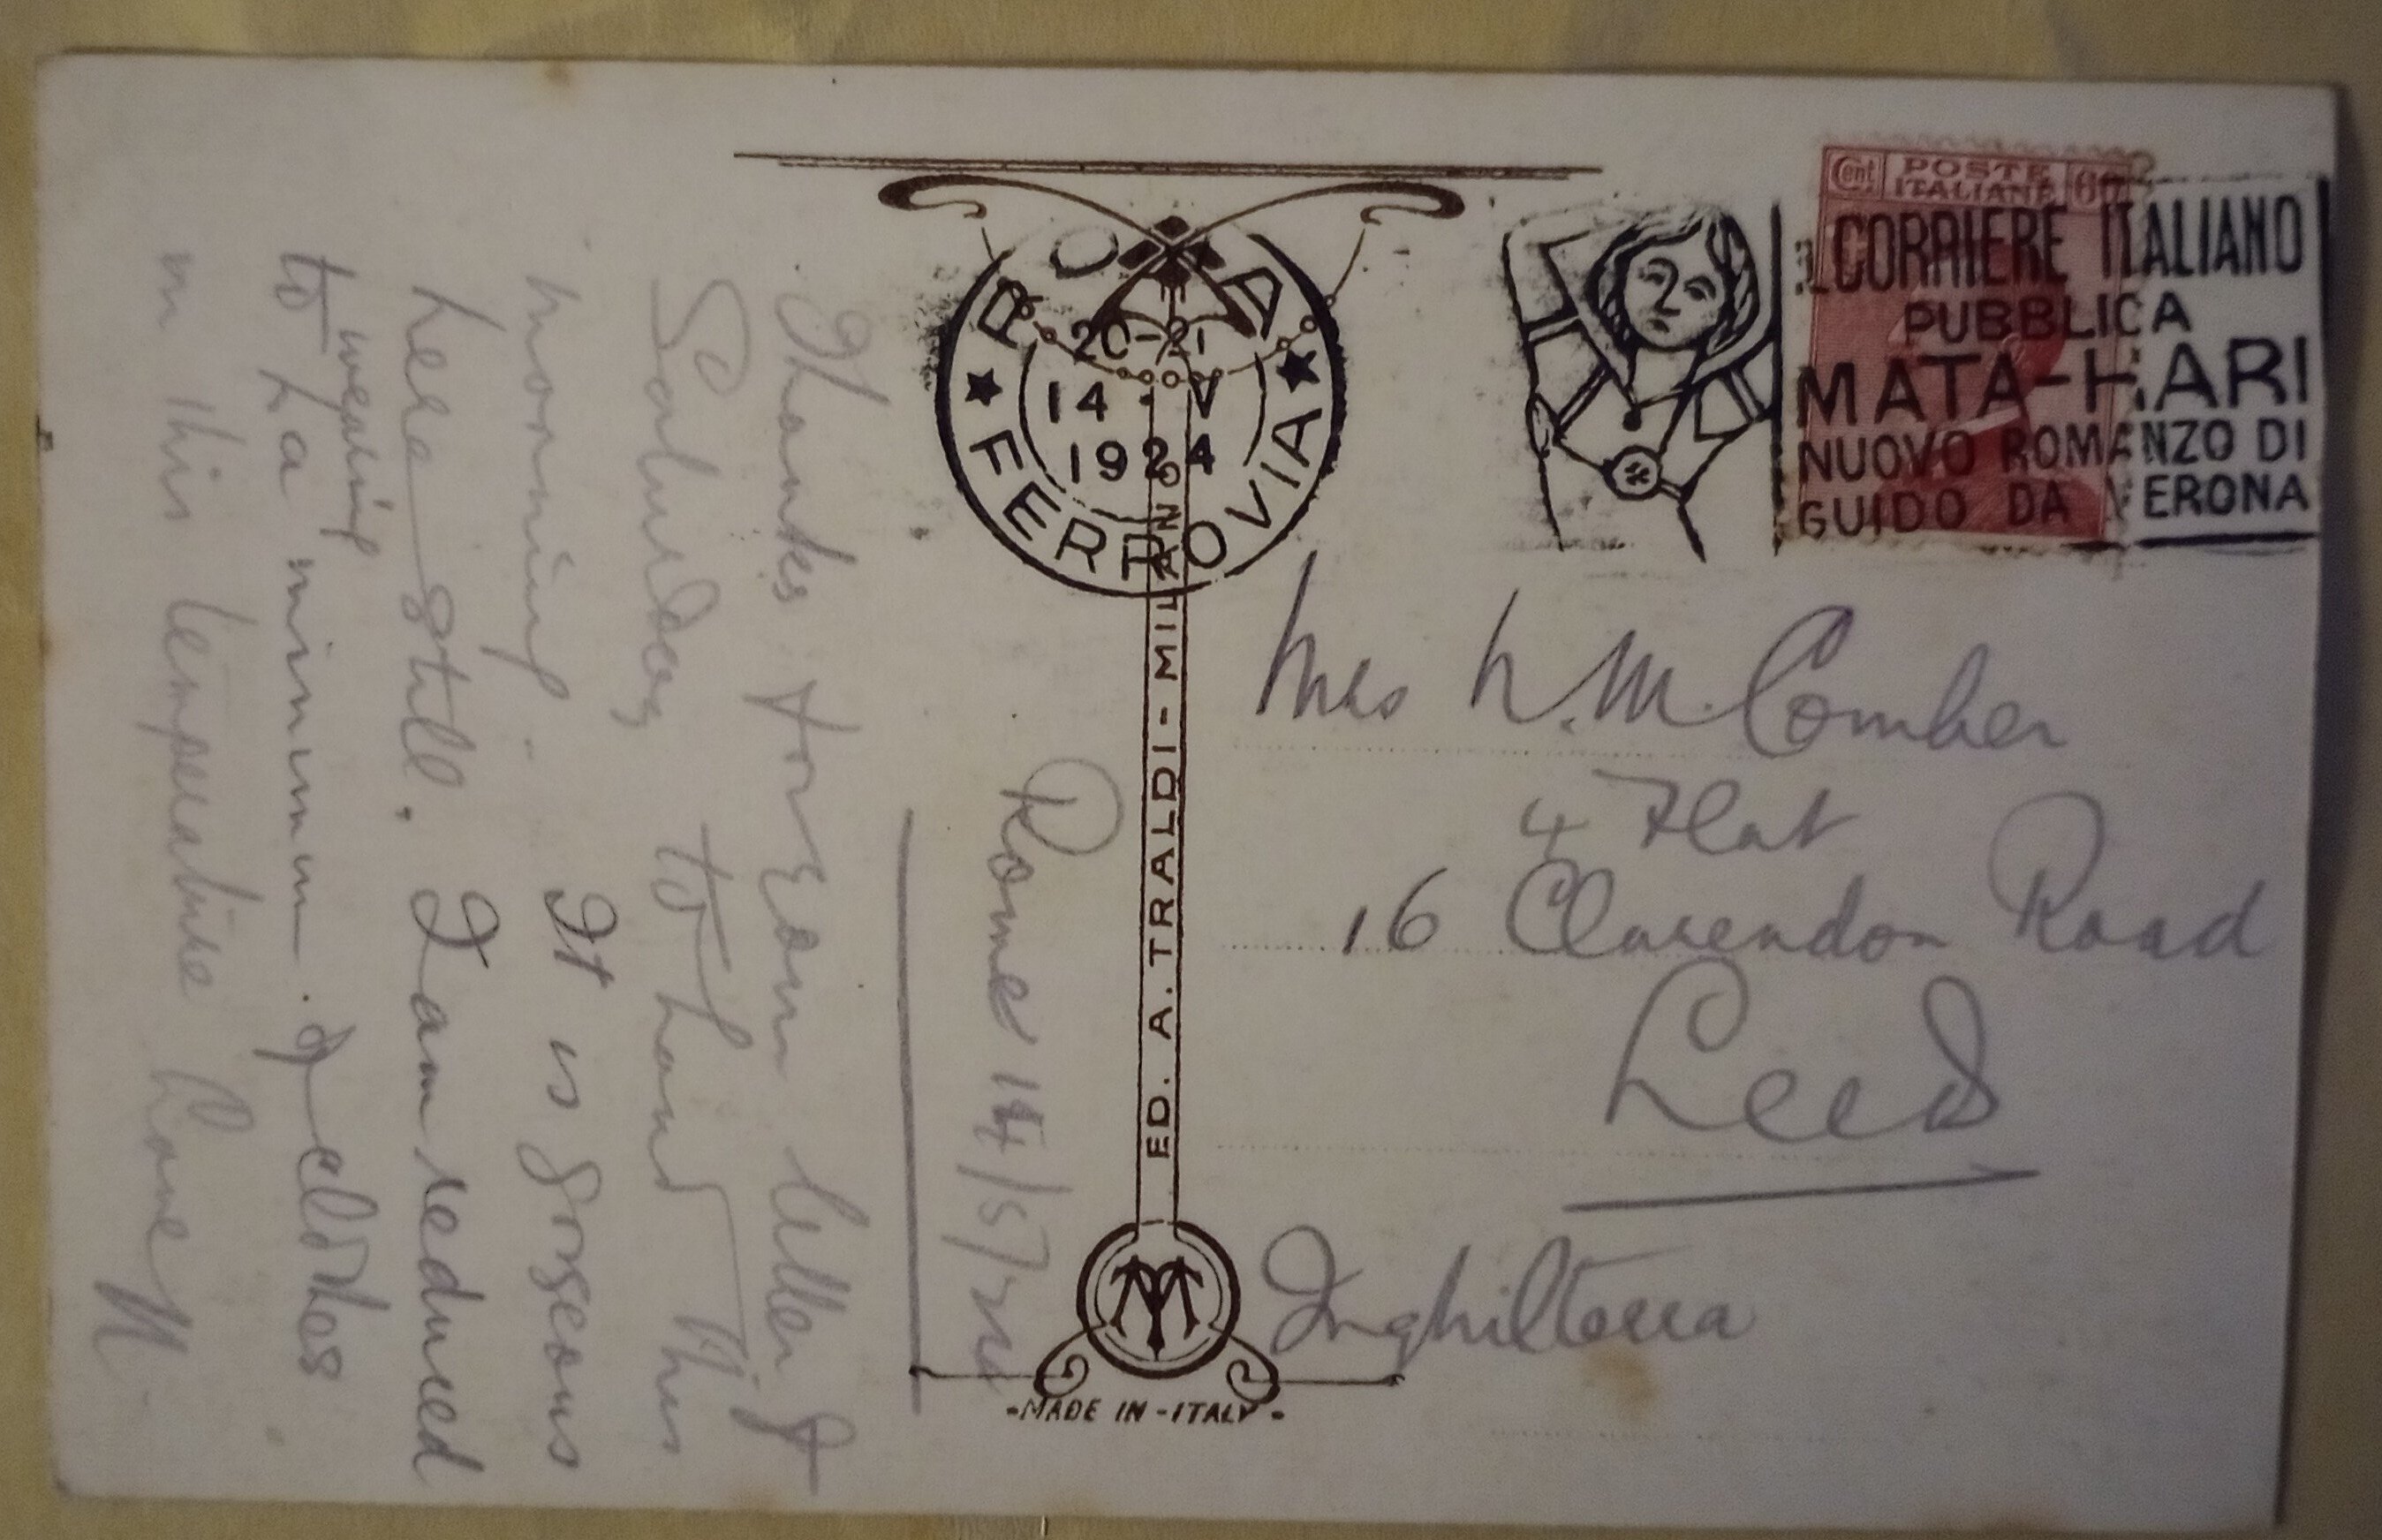 Rome 14/5/24
Thanks for your letter of
Saturday to hand this
morning. It is gorgeous
here still. I am reduced
to wearing a minimum of clothes
in this temperature Love
ROMA
FERROVIA
20-21
14 - V
1924
Cent POSTE ITALIANE 60
IL CORRIERE ITALIANO
PUBBLICA
MATA-HARI
NUOVO ROMANZO DI
GUIDO DA VERONA
ED. A. TRALDI - MILANO
Mrs M. Comber
4 Flat
16 Clarendon Road
Leeds
Inghilterra
-MADE IN-ITALY-